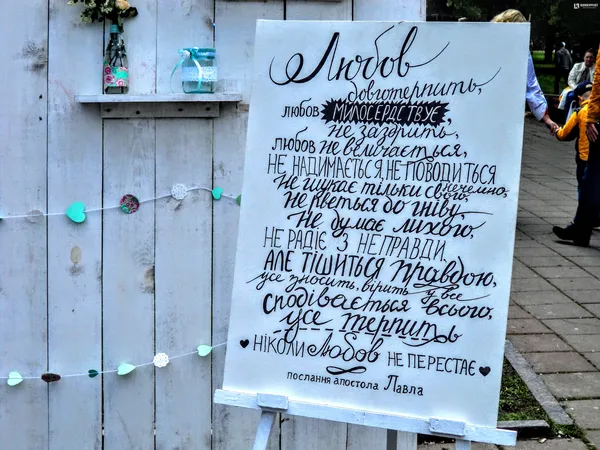 Любов
довготерпить,
любов МИЛОСЕРДСТВУЄ,
не заздрить,
любов не величається,
НЕ НАДИМАЄТЬСЯ, НЕ ПОВОДИТЬСЯ
нечемно,
не шукає тільки свого,
не рветься до гніву,
не думає лихого,
НЕ РАДІЄ З НЕПРАВДИ,
АЛЕ ТІШИТЬСЯ правдою,
усе зносить, вірить у все
сподівається всього,
усе терпить
НІКОЛИ Любов НЕ ПЕРЕСТАЄ
послання апостола Павла